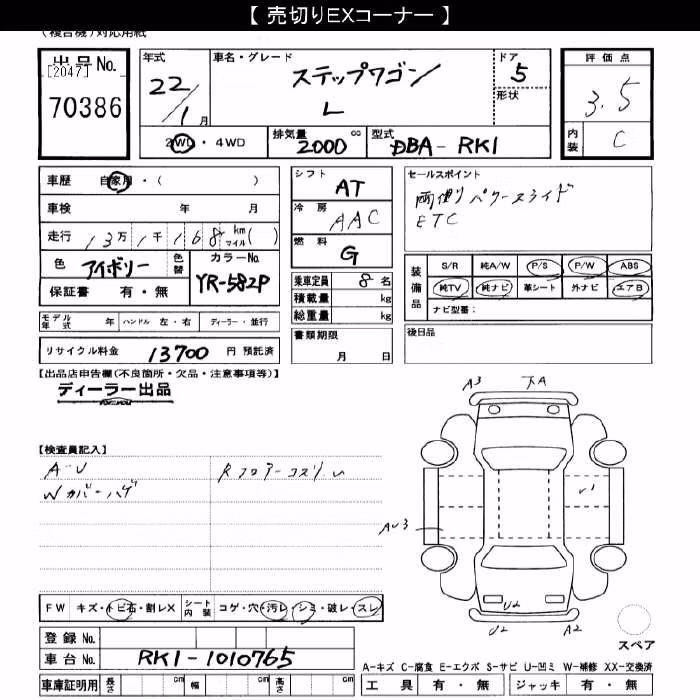 【 売切りEXコーナー 】
(複合機)対応用紙
出品No.
[2047]
70386
年式
22/1月
車名・グレード
ステップワゴン
L
ドア
5
形状
評価点
3.5
内装
C
2WD・4WD
排気量
2000 cc
型式
DBA-RK1
車歴 自家用・( )
車検 年 月
走行 13万1千168 km マイル( )
色 アイボリー
色替
カラーNo.
YR-582P
保証書 有・無
モデル年式 年 ハンドル 左・右 ディーラー・並行
リサイクル料金 13700 円 預託済
シフト AT
冷房 AAC
燃料 G
乗車定員 8 名
積載量 kg
総重量 kg
書類期限
月 日
セールスポイント
両側パワースライド
ETC
装備品
S/R 純A/W P/S P/W ABS
純TV 純ナビ 革シート 外ナビ エアB
ナビ型番:
後日品
【出品店申告欄(不良箇所・欠品・注意事項等)】
ディーラー出品
for YOU
【検査員記入】
A-U
Wカバーハゲ
Rフロアーコスリ
A3
下A
AU3
U2
U2
A2
FW キズ・トビ石・割レX
シート内装 コゲ・穴・汚レ・シミ・破レ・スレ
登録No.
車台No. RK1-1010765
車庫証明用 長さ cm 幅 cm 高さ cm
スペア
A-キズ C-腐食 E-エクボ S-サビ U-凹ミ W-補修 XX-交換済
工具 有・無 ジャッキ 有・無